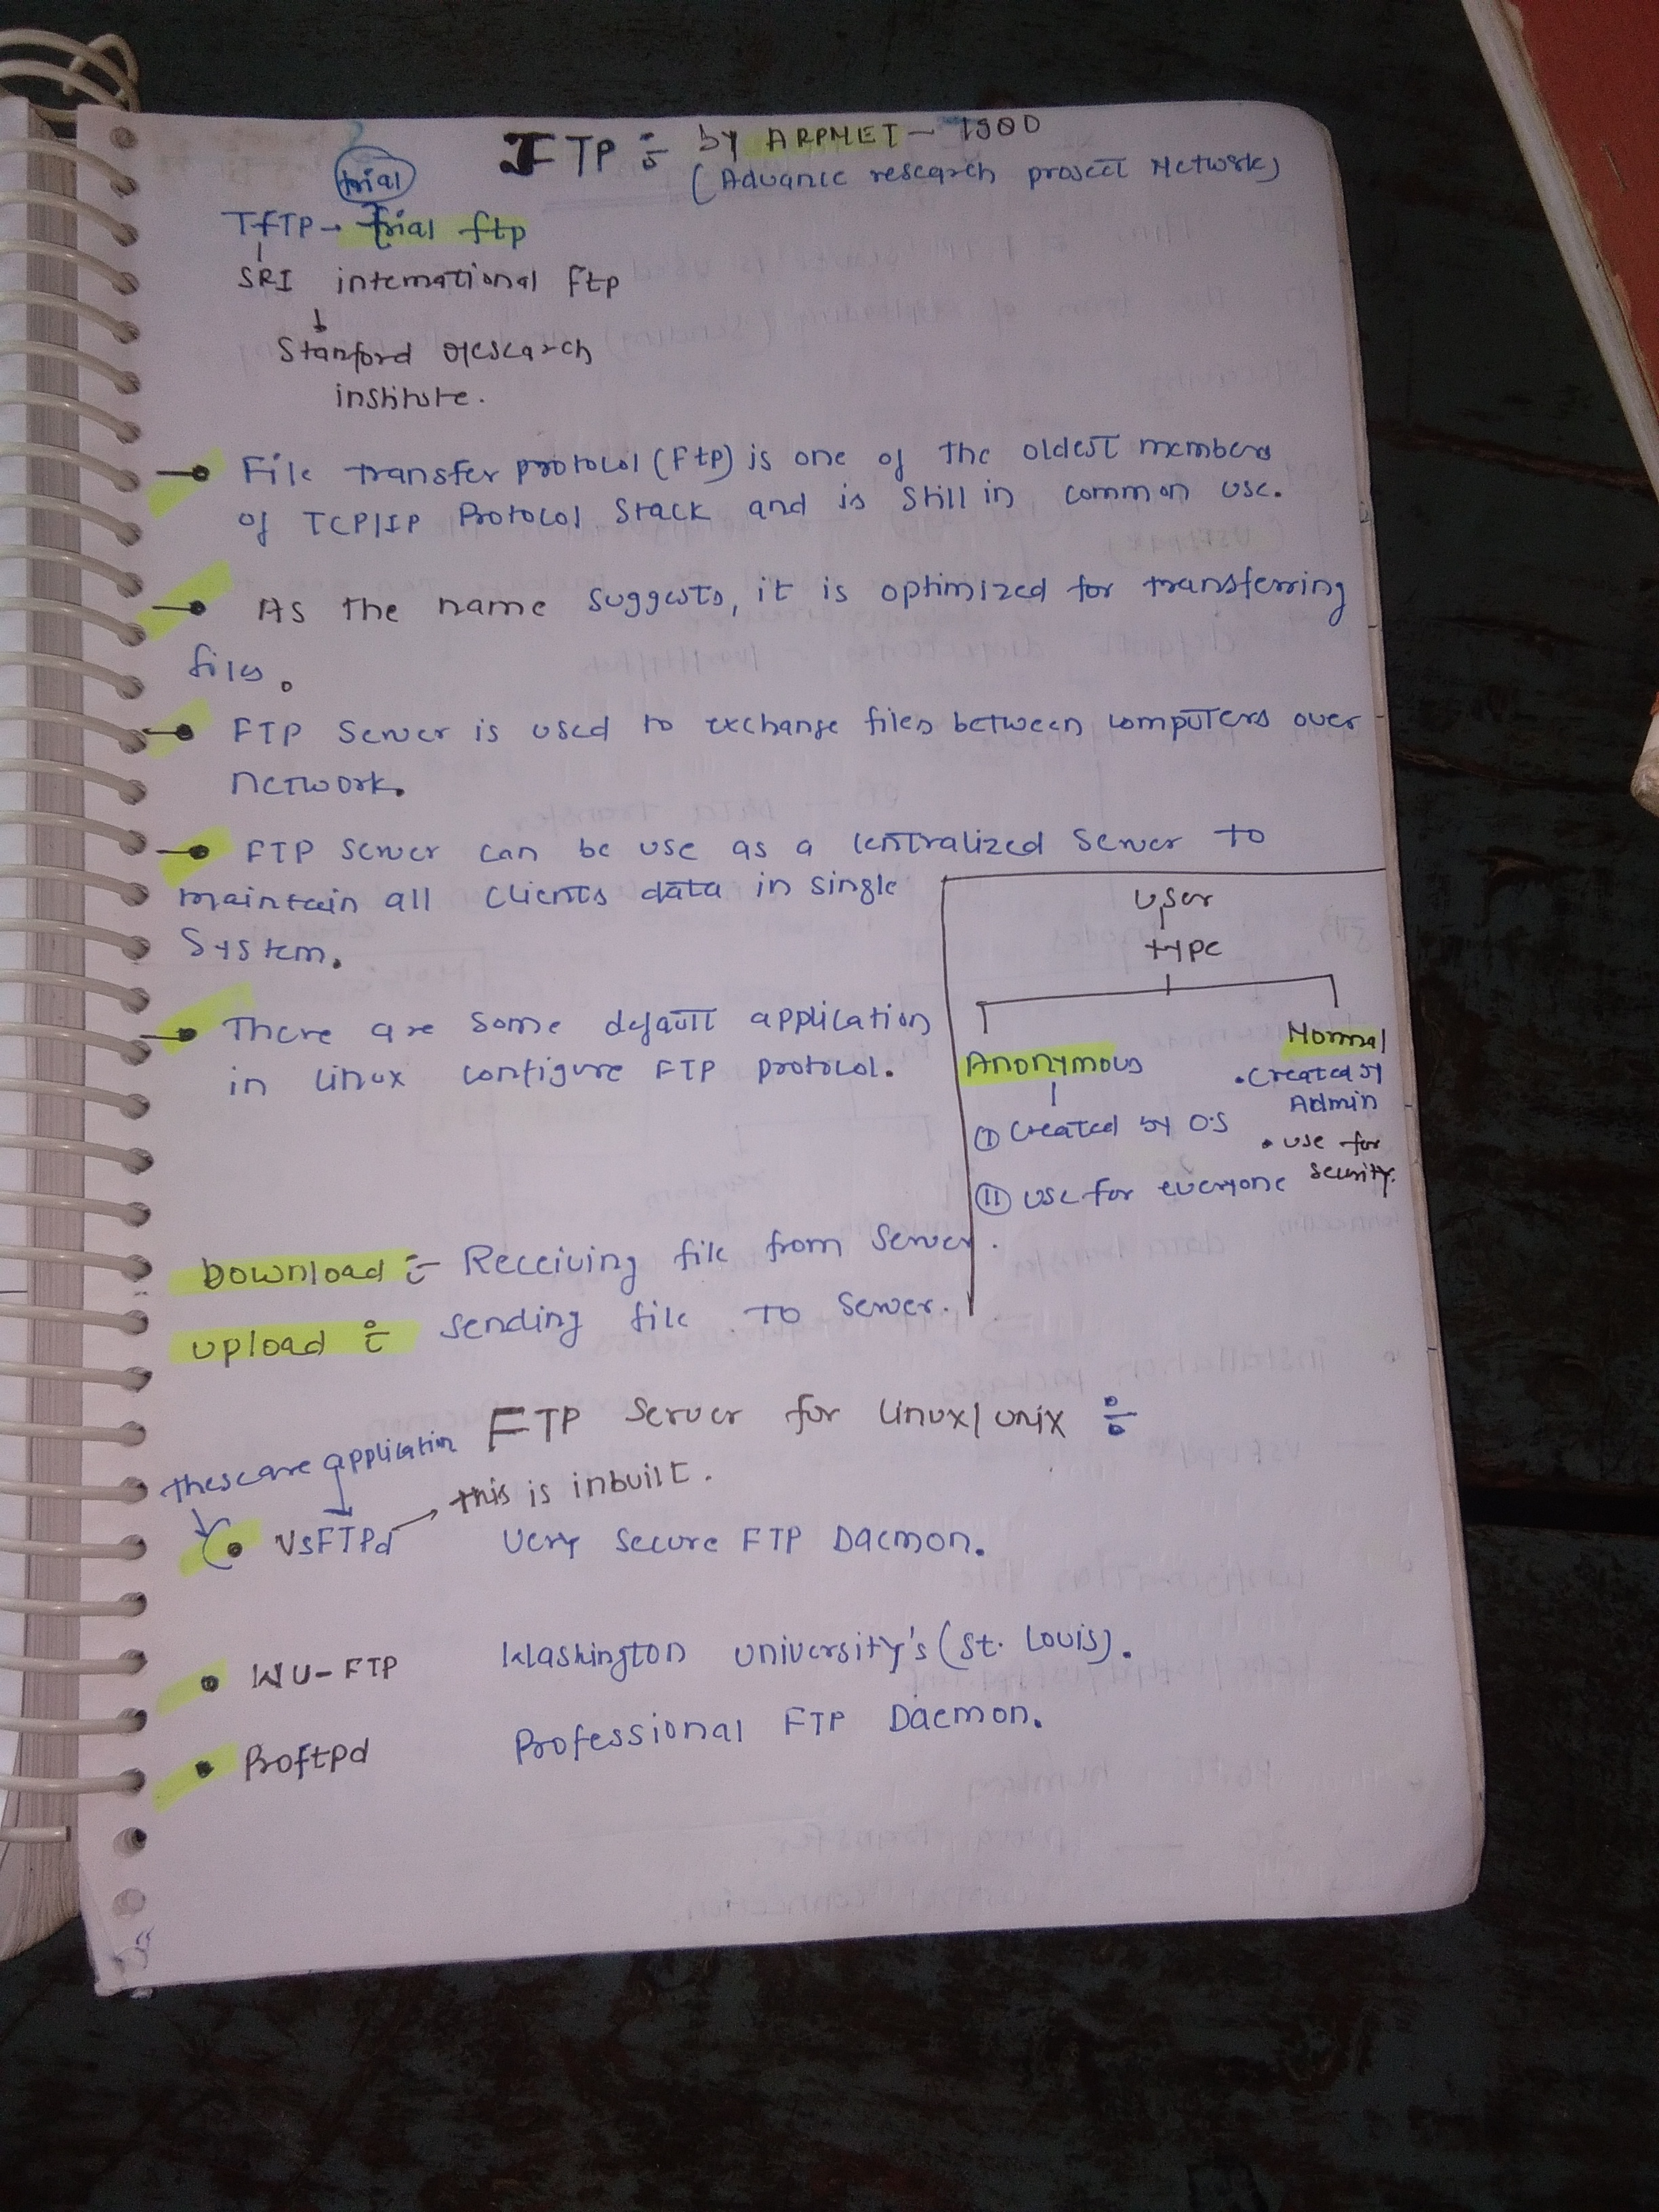 FTP ÷ by ARPNET - 1980
(Advance research project Network)
trial
TFTP → Trial ftp
SRI international ftp
Stanford research
institute.
File transfer protocol (ftp) is one of the oldest members
of TCP/IP Protocol Stack and is still in common use.
As the name suggests, it is optimized for transferring
files.
FTP Server is used to exchange files between computers over
network.
FTP server can be use as a centralized server to
maintain all clients data in single
System.
User
type
There are some default application
in linux configure FTP protocol.
Anonymous
Normal
• Created by
Admin
① Created by O.S
• use for
security.
② use for everyone
Download ÷ Receiving file from server.
Upload ÷ sending file to server.
FTP Server for linux/unix ÷
these are application
this is inbuilt.
• VsFTPd Very Secure FTP Daemon.
• WU-FTP Washington university's (st. Louis).
• Proftpd Professional FTP Daemon.